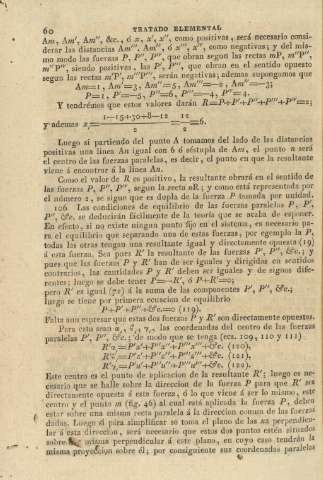 60 TRATADO ELEMENTAL
Am, Am', Am'', &c., ó x, x', x'', como positivas, será necesario consi-
derar las distancias Am''', Am'', ó x''', x'', como negativas; y del mis-
mo modo las fuerzas P, P', P'', que obran segun las rectas mP, m'P'',
m''P'', siendo positivas, las P', P''', que obran en el sentido opuesto
segun las rectas m'P', m'''P''', serán negativas; ademas supongamos que
Am=1, Am'=3, Am''=5, Am'''=-2, Am''=-3;
P=1, P'=-5, P''=6, P'''=-4, P''=4.
Y tendrémos que estos valores darán R=P+P'+P''+P'''+P''=2;
y ademas x,=1-15+30+8-12/2=12/2=6.
Luego si partiendo del punto A tomamos del lado de las distancias
positivas una línea An igual con 6 ó séstupla de Am, el punto n será
el centro de las fuerzas paralelas, es decir, el punto en que la resultante
viene á encontrar á la línea An.
Como el valor de R es positivo, la resultante obrará en el sentido de
las fuerzas P, P'', P'', segun la recta nR; y como está representada por
el número 2, se sigue que es dupla de la fuerza P tomada por unidad.
106 Las condiciones de equilibrio de las fuerzas paralelas P, P',
P'', &c. se deducirán fácilmente de la teoría que se acaba de esponer.
En efecto, si no existe ningun punto fijo en el sistema, es necesario pa-
ra el equilibrio que separando una de estas fuerzas, por egemplo la P,
todas las otras tengan una resultante igual y directamente opuesta (19)
á esta fuerza. Sea pues R' la resultante de las fuerzas P', P'', &c.; y
pues que las fuerzas P y R' han de ser iguales y dirigidas en sentidos
contrarios, las cantidades P y R' deben ser iguales y de signos dife-
rentes; luego se debe tener P=-R', ó P+R'=0;
pero R' es igual (72) á la suma de las componentes P', P'', &c.;
luego se tiene por primera ecuacion de equilibrio
P+P'+P''+&c.=0 (119).
Falta aun espresar que estas dos fuerzas P y R' son directamente opuestas.
Para esto sean x,, z,, y,, las coordenadas del centro de las fuerzas
paralelas P', P'', &c.; de modo que se tenga (ecs. 109, 110 y 111)
R'x,=P'x'+P''x''+P'''x'''+&c. (120),
R'z,=P'z'+P''z''+P'''z'''+&c. (121),
R'y,=P'y'+P''y''+P'''y'''+&c. (122).
Este centro es el punto de aplicacion de la resultante R'; luego es ne-
cesario que se halle sobre la direccion de la fuerza P para que R' sea
directamente opuesta á esta fuerza, ó lo que viene á ser lo mismo, este
centro y el punto m (fig. 46) al cual está aplicada la fuerza P, deben
estar sobre una misma recta paralela á la direccion comun de las fuerzas
dadas. Luego si para simplificar se toma el plano de las xz perpendicu-
lar á esta direccion, será necesario que estos dos puntos estén situados
sobre misma perpendicular á este plano, en cuyo caso tendrán la
misma proyeccion sobre él; por consiguiente sus coordenadas paralelas